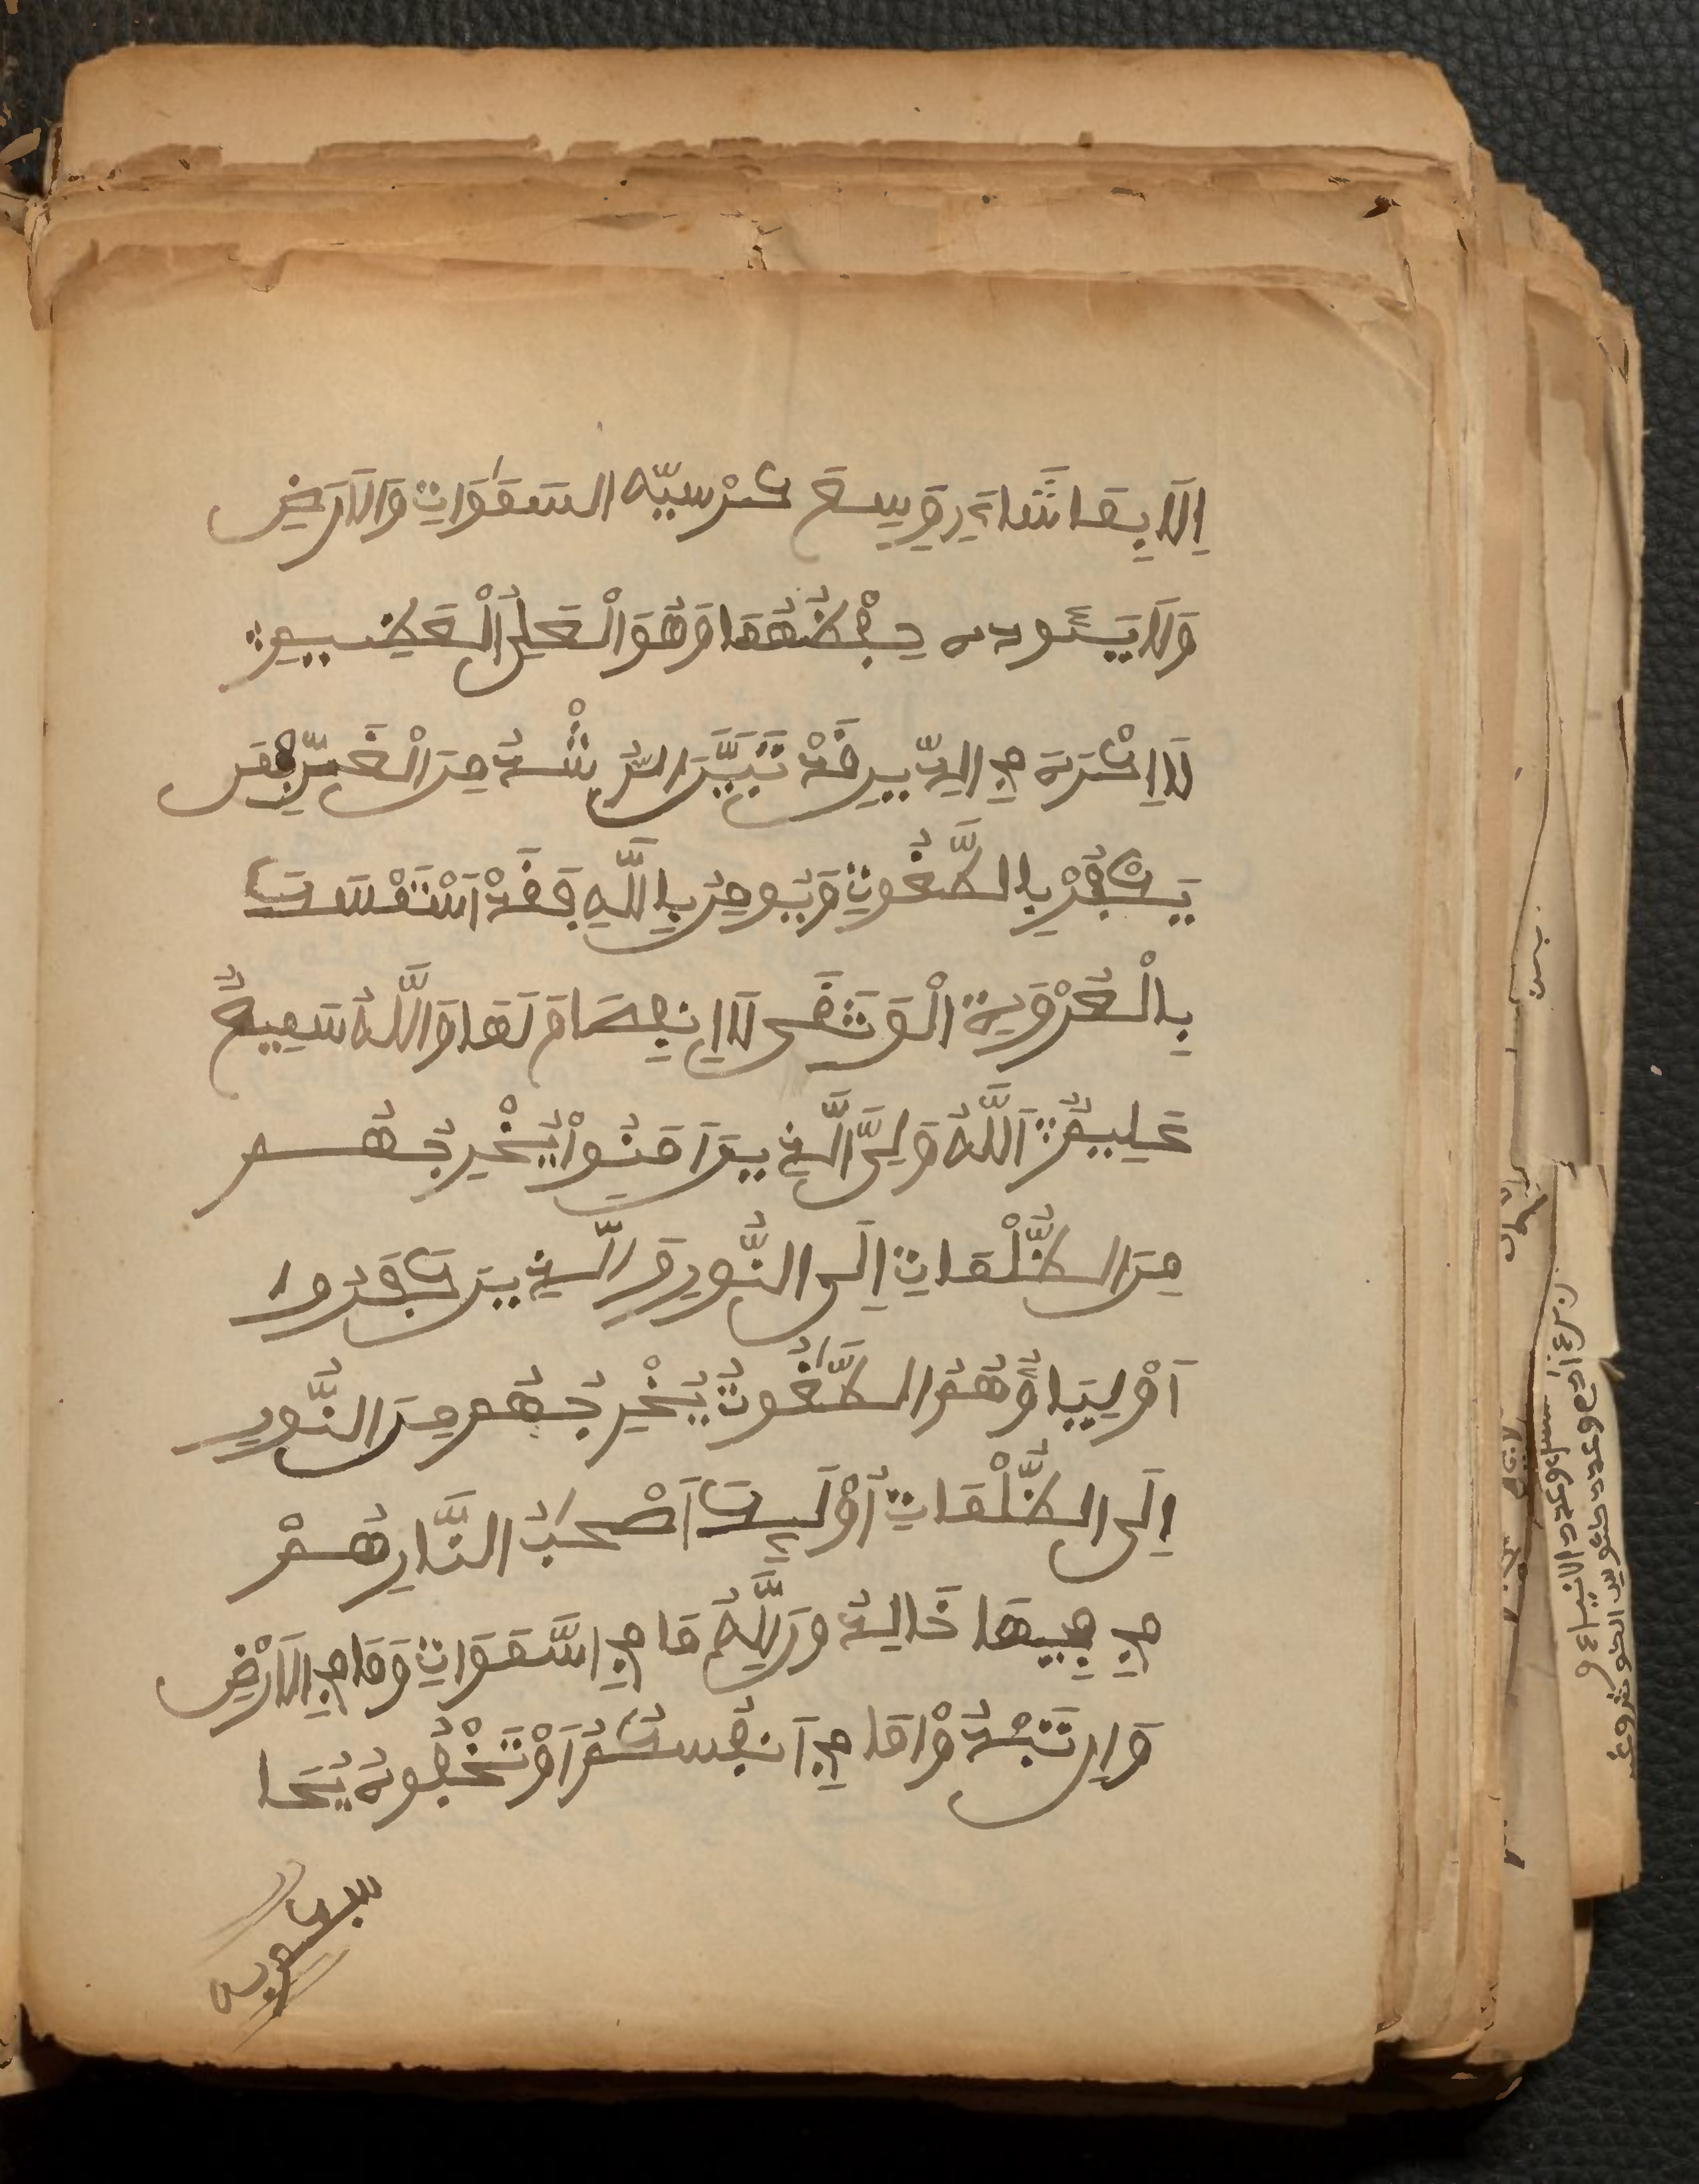 اِلَّا بِمَا شَاءَ وَسِعَ كُرْسِيُّهُ السَّمَوَاتِ وَالَارْضِ
وَلَا يَـُٔودُهُ حِفْظُهُمَا وَهُوَ الْعَلِيُّ الْعَظِيمُ
لَا إِكْرَاهَ فِي الدِّينِ قَدْ تَبَيَّنَ الرُّشْدُ مِنَ الْغَيِّ فَمَن
يَكْفُرْ بِالطَّغُوتِ وَيُومِنُ بِاللَّهِ فَقَدْ اَسْتَمْسَكَ
بِالْعُرْوَةِ الْوُثْقَى لَا اِنفِصَامَ لَهَا وَاللَّهُ سَمِيعٌ
عَلِيمٌ اَللَّهُ وَلِيُّ الَّذِينَ آمَنُوا يُخْرِجُهُم
مِنَ الظُّلْمَاتِ إِلَى النُّورِ وَالَّذِينَ كَفَرُوا
أَوْلِيَاؤُهُمُ الطَّغُوتُ يُخْرِجُهُم مِنَ النُّورِ
إِلَى الظُّلْمَاتِ أُوْلَئِكَ أَصْحَبُ النَّارِ هُمْ
فِي فِيهَا خَالِدُونَ لِلَّهِ مَا فِي السَّمَوَاتِ وَمَا فِي الَارْضِ
وَإِن تُبْدُوا مَا فِي أَنفُسِكُمُ أَوْ تُخْفُوهُ يُحَا